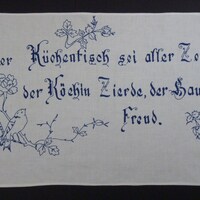 er Küchentisch sei aller Ze
der Köchin Zierde, der Hau
Freud.